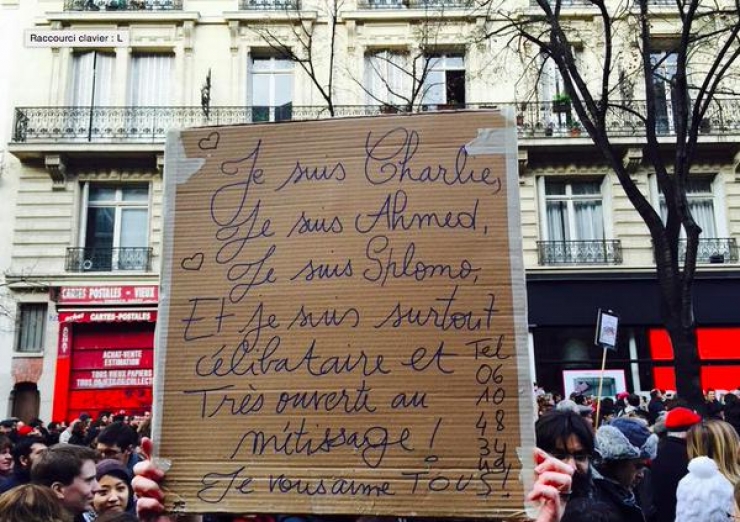 Raccourci clavier : L
Je suis Charlie,
Je suis Ahmed,
Je suis Shlomo,
Et je suis surtout
célibataire et
Très ouverte au
métissage !
Je vous aime TOUS !
Tel
06
10
48
34
49
CARTES POSTALES - VIEUX
achat CARTES-POSTALES
ACHAT-VENTE
ESTIMATION
TOUS VIEUX PAPIERS
TOUS OBJETS DE COLLECT